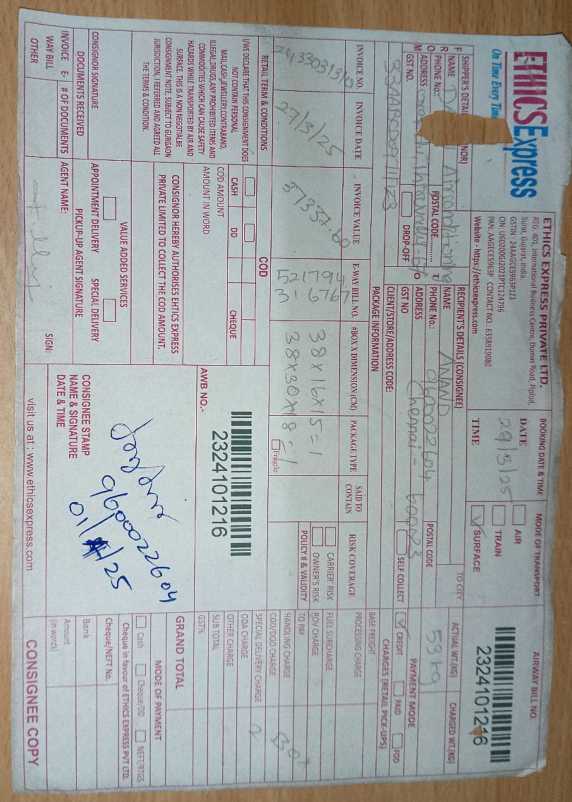 ETHICS Express
On Time Every Time
ETHICS EXPRESS PRIVATE LTD.
REG. 401, International Business Centre, Dumas Road, Piplod,
Surat, Gujarat, India.
Website - https://ethicsexpress.com
BOOKING DATE & TIME
DATE 29/3/25
TIME
MODE OF TRANSPORT
AIR
TRAIN
SURFACE
AIRWAY BILL NO.
2324101216
NAME
PHONE No.:
ADDRESS
POSTAL CODE
GST NO.
DROP-OFF
RECIPIENT'S DETAILS (CONSIGNEE)
NAME ANAND
PHONE No.: 9600022604
ADDRESS Chennai - 600023
POSTAL CODE
GST NO
SELF COLLECT
CLIENT/STORE/ADDRESS CODE:
ACTUAL WT.(KG)
CHARGED WT.(KG)
59 kg
PAYMENT MODE
CREDIT
PAID
FOD
CHARGES (RETAIL PICK-UPS)
PACKAGE INFORMATION
INVOICE NO.
INVOICE DATE
INVOICE VALUE
E-WAY BILL NO.
#BOX X DIMENSION (CM)
PACKAGE TYPE
SAID TO CONTAIN
RISK COVERAGE
27/3/25
37337.60
521794
316767
38x16x15=1
38x30x18=1
Fragile
CARRIER' RISK
OWNER'S RISK
POLICY # & VALIDITY
BASE FREIGHT
PROCESSING CHARGE
FUEL SURCHARGE
ROV CHARGE
TO PAY
HANDLING CHARGE
COD/DOD CHARGE
SPECIAL DELIVERY CHARGE
ODA CHARGE
OTHER CHARGE
SUB TOTAL
GSTN
GRAND TOTAL
RETAIL TERM & CONDITIONS
I/WE DECLARE THAT THIS CONSIGNMENT DOES
NOT CONTAIN PERSONAL
MAIL, CASH, JEWELLERY, CONTRABAND,
ILLEGAL DRUGS, ANY PROHIBITED ITEMS AND
COMMODITIES WHICH CAN CAUSE SAFETY
HAZARDS WHILE TRANSPORTED BY AIR AND
SURFACE. THIS IS A NON NEGOTIABLE
CONSIGNMENT NOTE. SUBJECT TO GURGAON
JURISDICTION. I REFERRED AND AGREED ALL
THE TERMS & CONDITION.
COD
CASH
DD
CHEQUE
COD AMOUNT
AMOUNT IN WORD
CONSIGNOR HEREBY AUTHORISES EHTICS EXPRESS
PRIVATE LIMITED TO COLLECT THE COD AMOUNT.
AWB NO.-
2324101216
CONSIGNOR SIGNATURE
VALUE ADDED SERVICES
APPOINTMENT DELIVERY
SPECIAL DELIVERY
DOCUMENTS RECEIVED
INVOICE
E-WAY BILL
OTHER
# OF DOCUMENTS
PICK-UP AGENT SIGNATURE
AGENT NAME:
SIGN:
CONSIGNEE STAMP
NAME & SIGNATURE
DATE & TIME
9600022604
visit us at : www.ethicsexpress.com
MODE OF PAYMENT
Cash
Cheque/DD
NEFT/RTGS
Cheque in favour of ETHICS EXPRESS PVT LTD.
Cheque/NEFT No.
Bank
Amount
(in words)
CONSIGNEE COPY